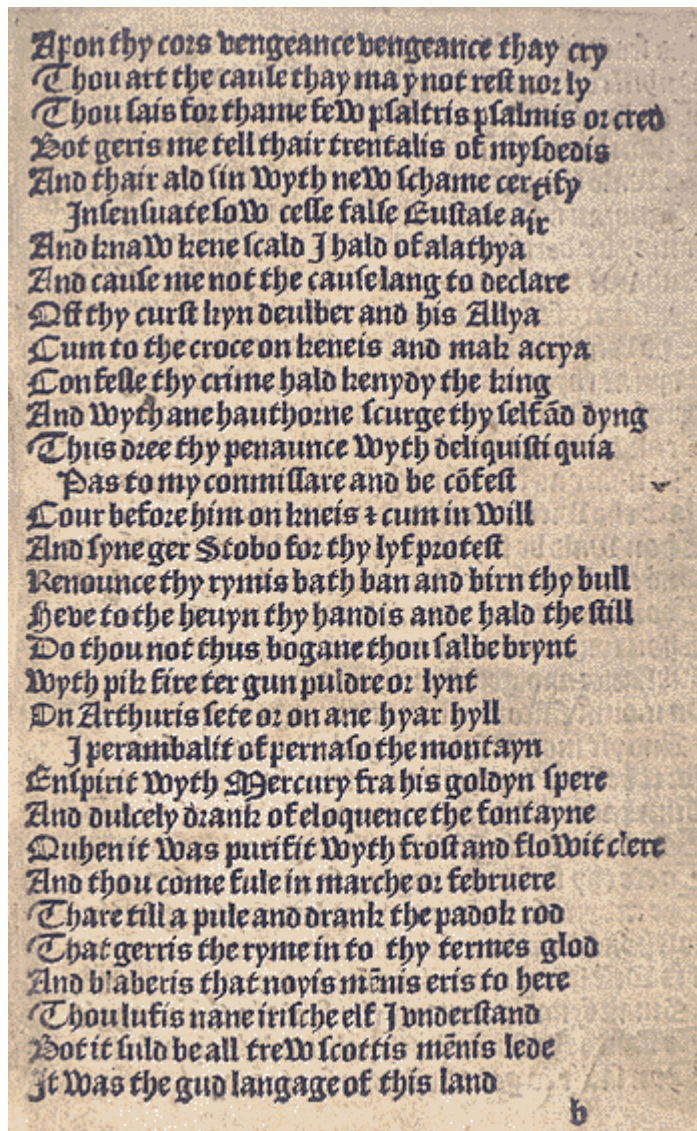 Apon thy cors vengeance vengeance thay cry
Thou art the cause thay may not rest nor ly
Thou sais for thame few psaltris psalmis or cred
Bot geris me tell thair trentalis of mysdedis
And thair ald sin wyth new schame certify
Insensuate sow cesse false Eustase air
And knaw kene scald I hald of alathya
And cause me not the cause lang to declare
Off thy curst kyn deulber and his Allya
Cum to the croce on keneis and mak a crya
Confesse thy crime hald kenydy the king
And wyth ane hauthorne scurge thy self ād dyng
Thus dree thy penaunce wyth deliquisti quia
Pas to my conmissare and be cōfest
Cour before him on kneis ⁊ cum in will
And syne ger Stobo for thy lyf protest
Renounce thy rymis bath ban and birn thy bull
Heve to the heuyn thy handis ande hald the still
Do thou not thus bogane thou salbe brynt
Wyth pik fire ter gun puldre or lynt
On Arthuris sete or on ane hyar hyll
I perambalit of pernaso the montayn
Enspirit wyth Mercury fra his goldyn spere
And dulcely drank of eloquence the fontayne
Quhen it was purifit wyth frost and flowit clere
And thou come fule in marche or februere
Thare till a pule and drank the padok rod
That gerris the ryme in to thy termes glod
And blaberis that noyis mēnis eris to here
Thou lufis nane irische elf I vnderstand
Bot it suld be all trew scottis mēnis lede
It was the gud langage of this land
b